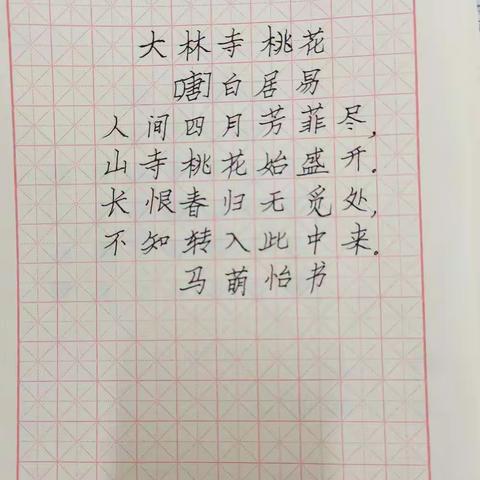 大林寺桃花
[唐]白居易
人间四月芳菲尽,
山寺桃花始盛开.
长恨春归无觅处,
不知转入此中来.
马萌怡书